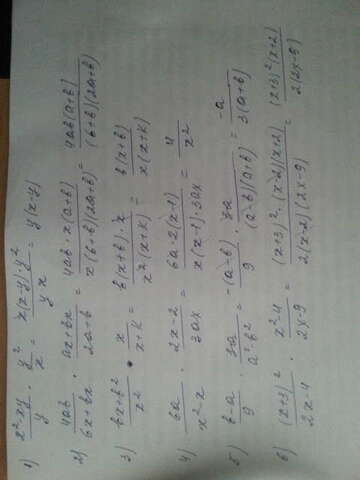 1) (x²-xy)/y · y²/x = (x(x-y)·y²)/(yx) = y(x-y)
2) 4ab/(6x+bx) · (ax+bx)/(2a+b) = (4ab·x(a+b))/(x(6+b)(2a+b)) = (4ab(a+b))/((6+b)(2a+b))
3) (bx+b²)/x² · x/(x+k) = (b(x+b)·x)/(x²(x+k)) = (b(x+b))/(x(x+k))
4) 6a/(x²-x) · (2x-2)/(3ax) = (6a·2(x-1))/(x(x-1)·3ax) = 4/x²
5) (b-a)/9 · 3a/(a²-b²) = (-(a-b))/9 · 3a/((a-b)(a+b)) = -a/(3(a+b))
6) (x+3)²/(2x-4) · (x²-4)/(2x-9) = ((x+3)²·(x-2)(x+2))/(2(x-2)(2x-9)) = ((x+3)²(x+2))/(2(2x-9))